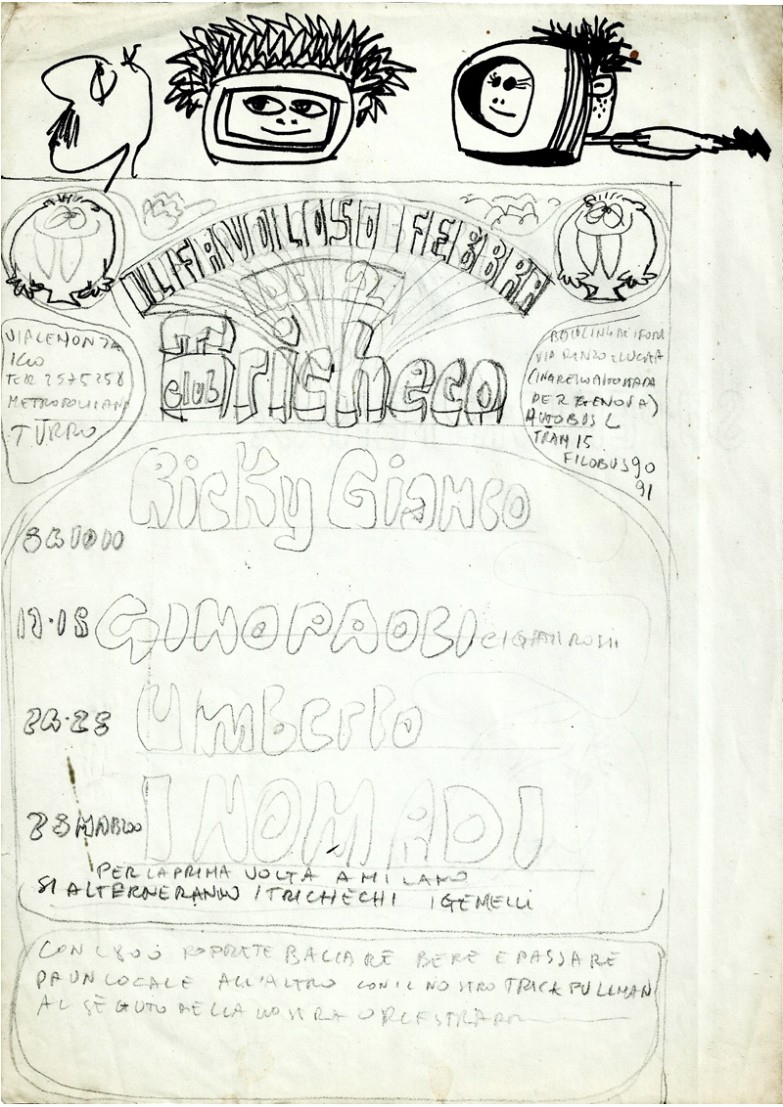 IL FAVOLOSO FEBBRA
DEI 2
Tricheco
club
VIALE MONZA
140
TEL 2575258
METROPOLITANA
TURRO
BOWLING DEI FIORI
VIA RENZO E LUCIA
(IN AREA AUTOSTRADA
PER GENOVA)
AUTOBUS L
TRAM 15
FILOBUS 90
91
Ricky Gianco
17·18 GINO PAOLI
24·25 Umberto
I NOMADI
PER LA PRIMA VOLTA A MILANO
SI ALTERNERANNO I TRICHECHI I GEMELLI
CON L800 POTRETE BALLARE BERE E PASSARE
DA UN LOCALE ALL'ALTRO CON IL NOSTRO TRICK PULLMAN
AL SEGUITO DELLA NOSTRA ORCHESTRA